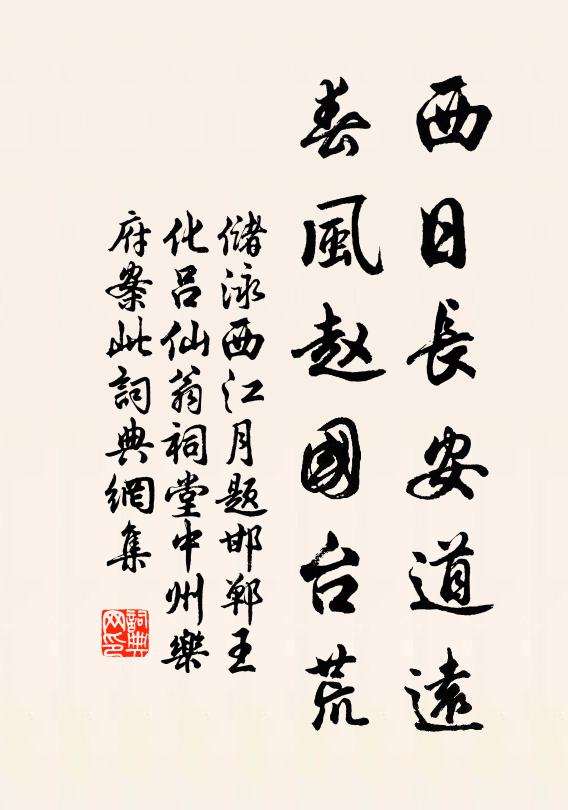 西日長安道遠
春風趙國台荒
儲泳西江月題邯鄲王
化呂仙翁祠堂中州樂
府案此詞典網集
詞典网印